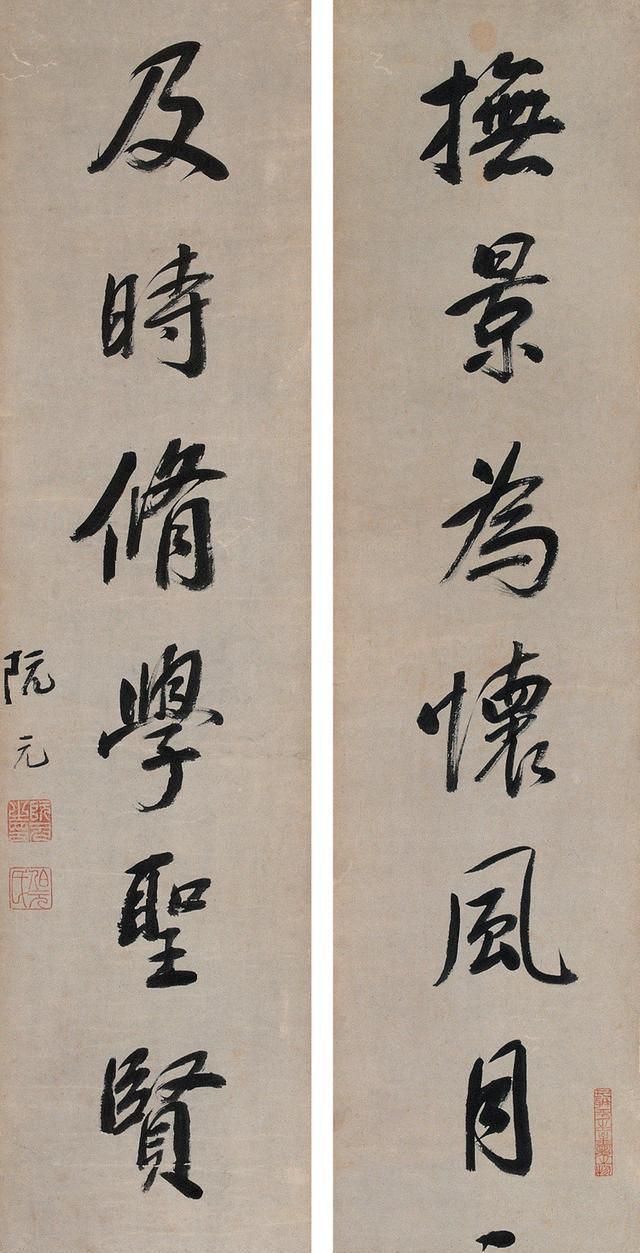 撫景為懷風月
及時脩學聖賢
阮元